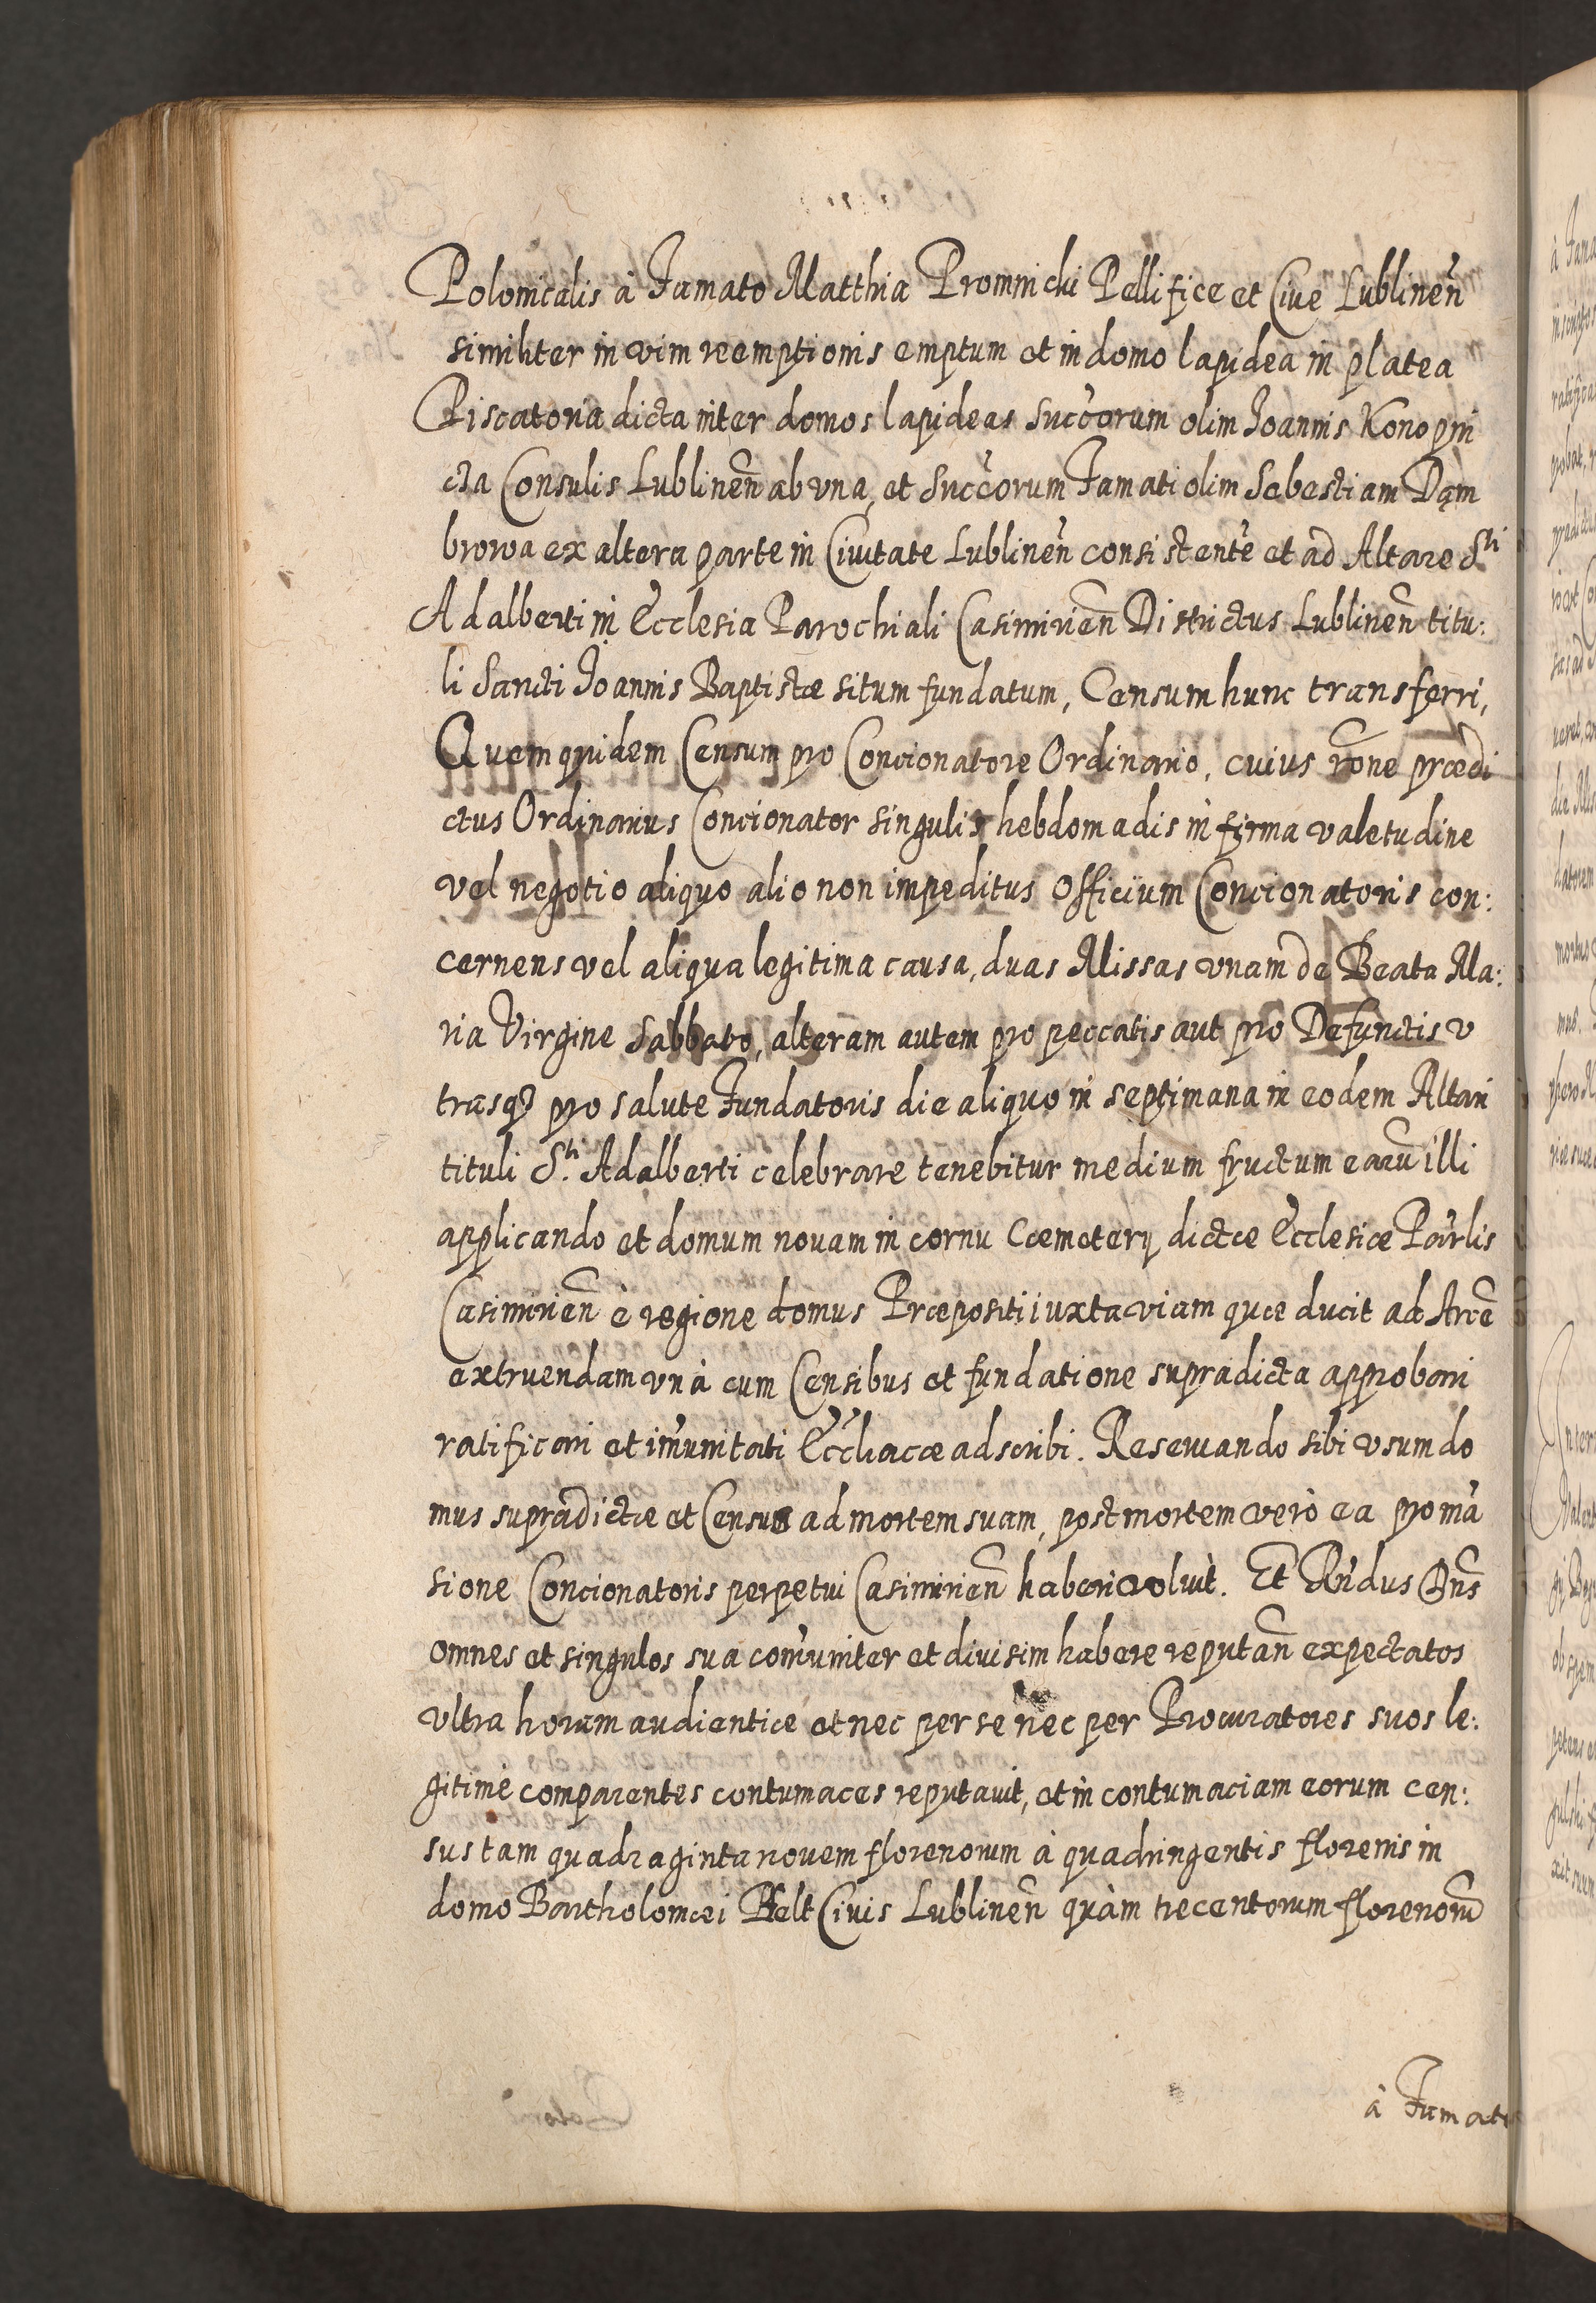 Polonicalis à Famato Matthia Promnicki Pellifice et Ciue Lublineñ
similiter in vim reemptionis emptum et in domo lapidea in platea
Piscatoria dicta inter domos lapideas Succorum olim Joannis Konopni
cta Consulis Lublineñ ab vna, et Succorum Famati olim Sebestiani Dąm
browa ex altera parte in Ciuitate Lublineñ consistente et ad Altare Sti
Adalberti in Ecclesia Parochiali Casimirieñ Districtus Lublineñ titu:
li Sancti Joannis Baptistæ situm fundatum, Censum hunc transferri,
Quem quidem Censum pro Concionatore Ordinario, cuius rõne prædi
ctus Ordinarius Concionator singulis hebdomadis infirma valetudine
vel negotio aliquo alio non impeditus Officium Concionatoris con:
cernens vel aliqua legitima causa, duas Missas vnam de Beata Ma:
ria Virgine Sabbato, alteram autem pro peccatis aut pro Defunctis v
trasq3 pro salute Fundatoris die aliquo in septimana in eodem Altari
tituli Sti. Adalberti celebrare tenebitur medium fructum earũ illi
applicando et domum nouam in cornu Cœmeterij dictæ Ecclesiæ Parlis
Casimirieñ è regione domus Præpositi iuxta viam quæ ducit ad Arcẽ
extruendam vnà cum Censibus et fundatione supradicta approbari
ratificari et im̃unitati Eccliacæ adscribi. Reseruando sibi vsum do
mus supradictæ et Census ad mortem suam, post mortem verò ea pro mã
sione Concionatoris perpetui Casimirieñ haberi voluit. Et Rñdus Dñs
omnes et singulos sua com̃uniter et diuisim habere reputañ expectatos
vltra horam audientiæ et nec per se nec per Procuratores suos le:
gitimè comparentes contumaces reputauit, et in contumaciam eorum cen:
sus tam quadraginta nouem florenorum à quadringentis florenis in
domo Bartholomæi Relt Ciuis Lublineñ quàm trecentorum florenorũ
à Famato